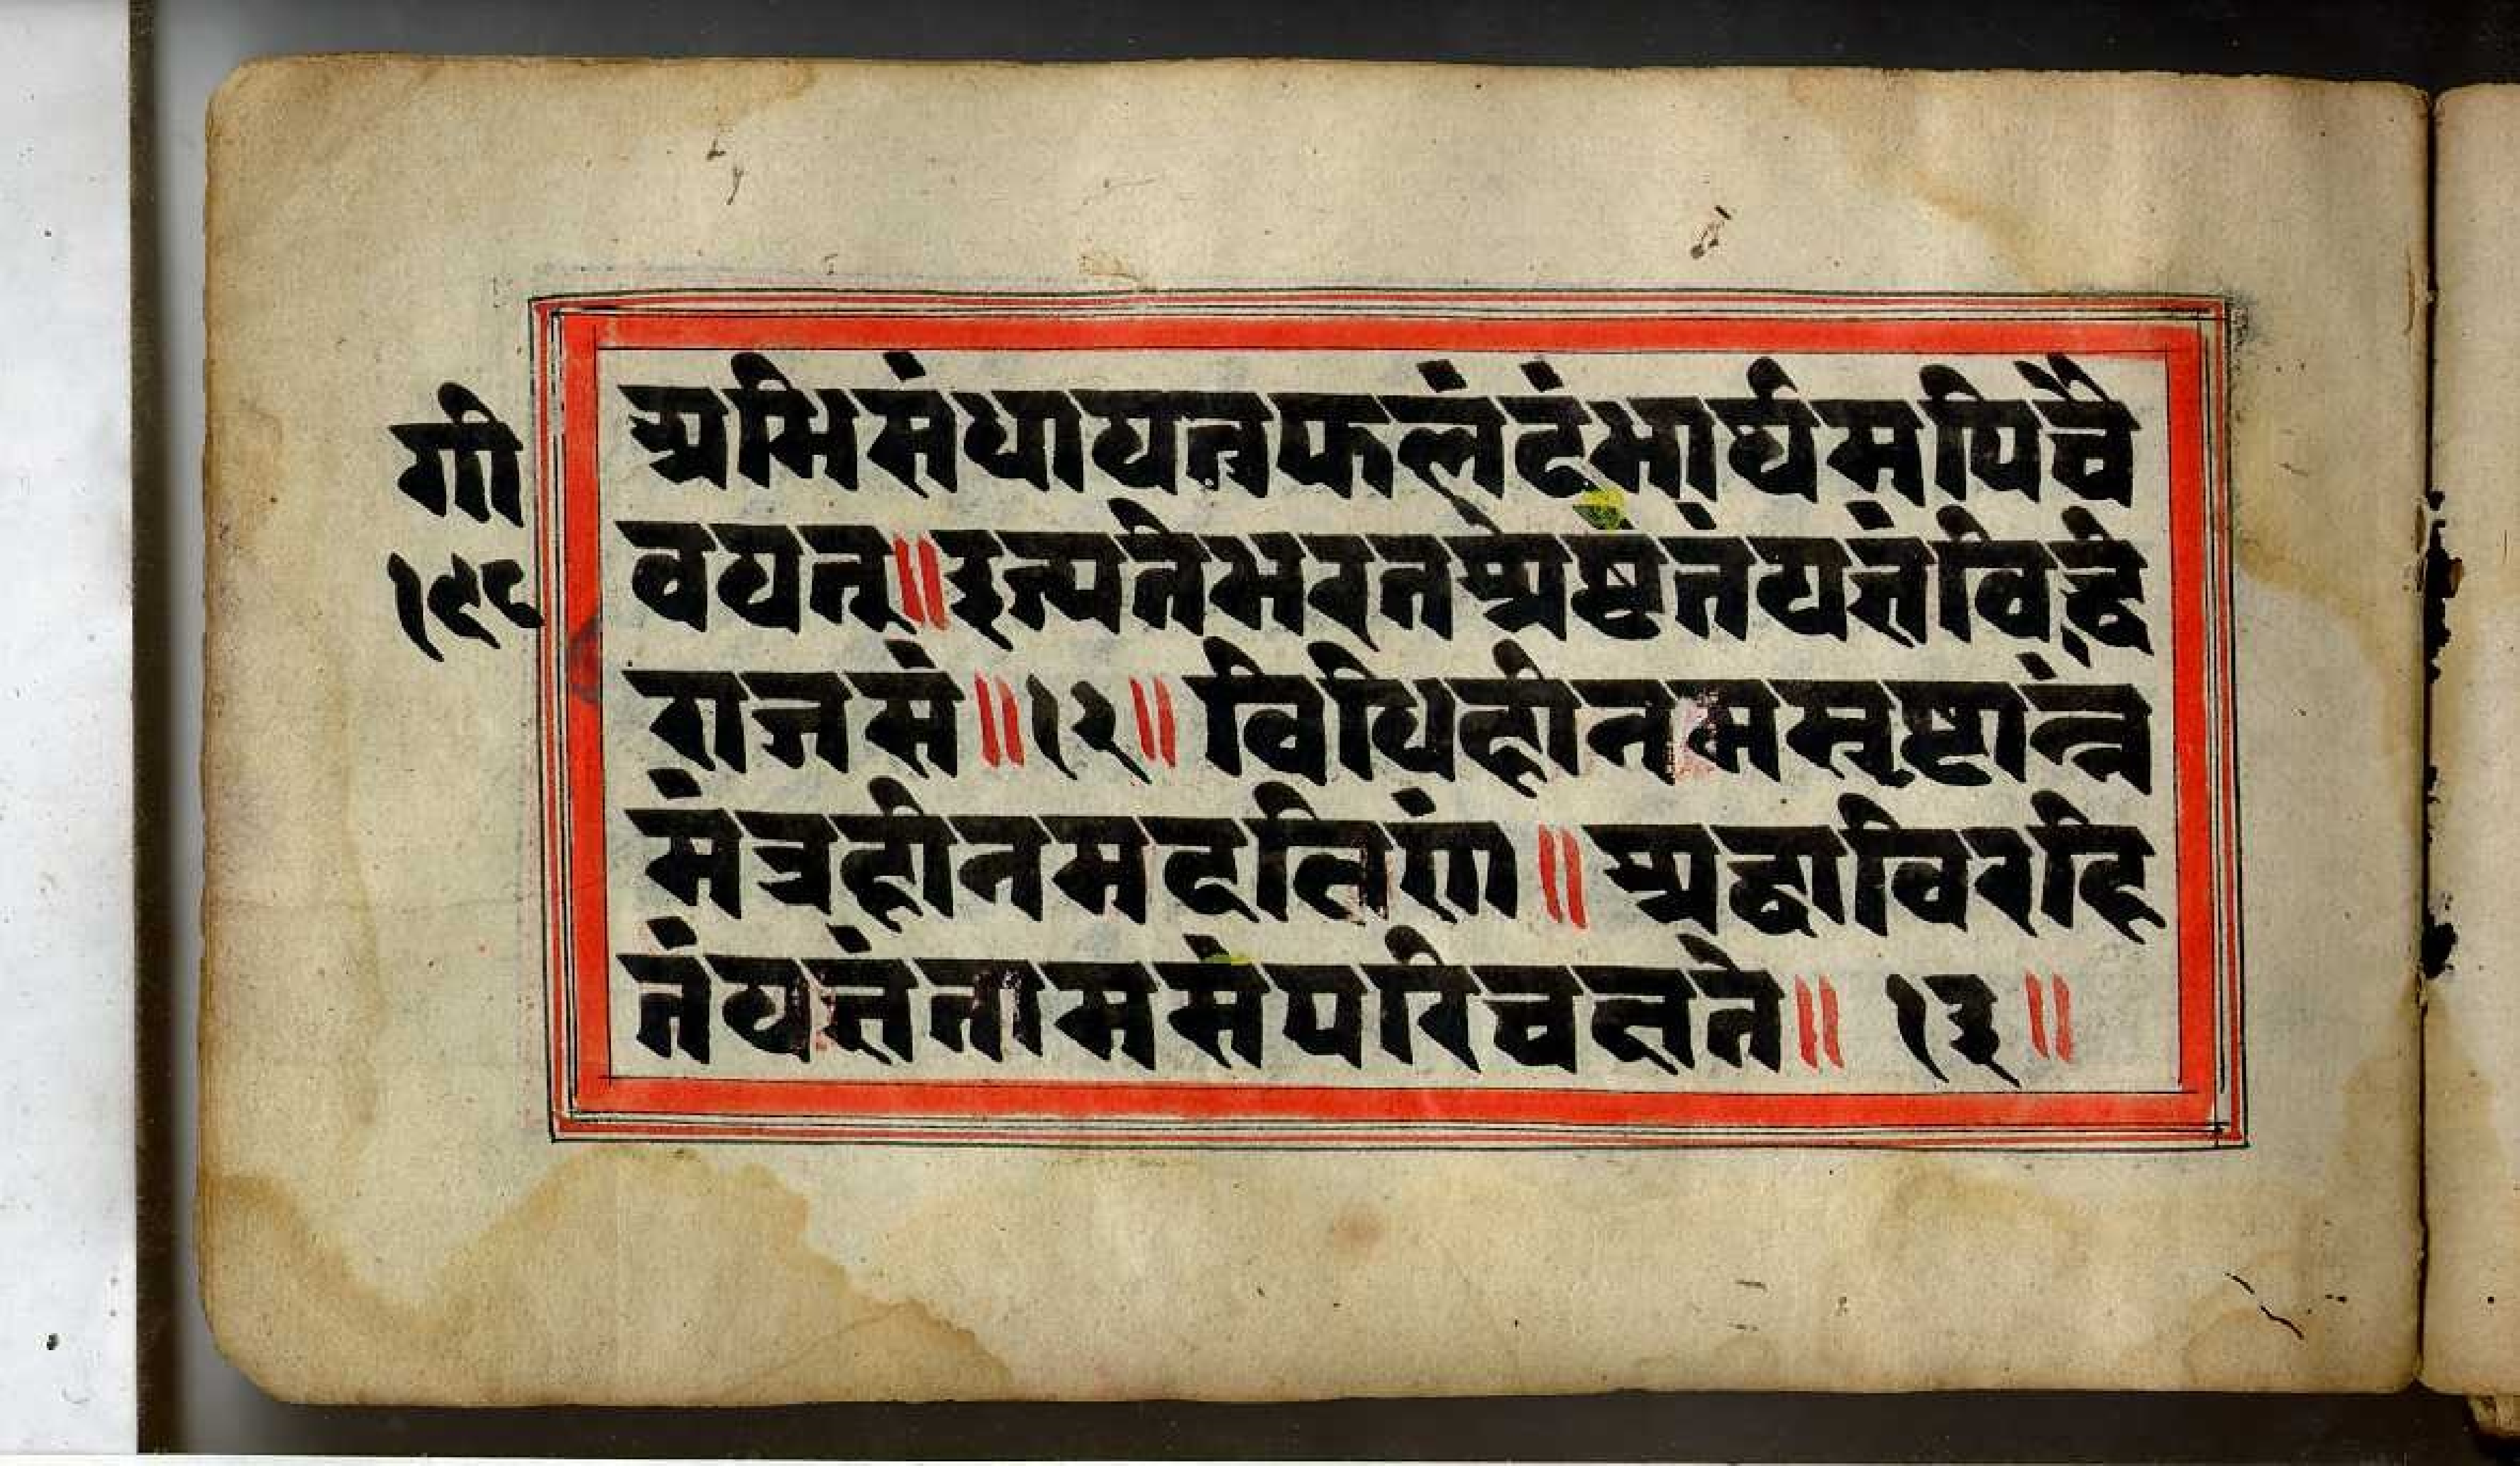 गी
१९८
अभिसंधायतुफलंदंभार्थमपिचै
वयत्॥इज्यतेभरतश्रेष्ठतंयज्ञंविद्धि
राजसं॥१२॥विधिहीनमसृष्टान्नं
मंत्रहीनमदक्षिणं॥श्रद्धाविरहि
तंयज्ञंतामसंपरिचक्षते॥१३॥